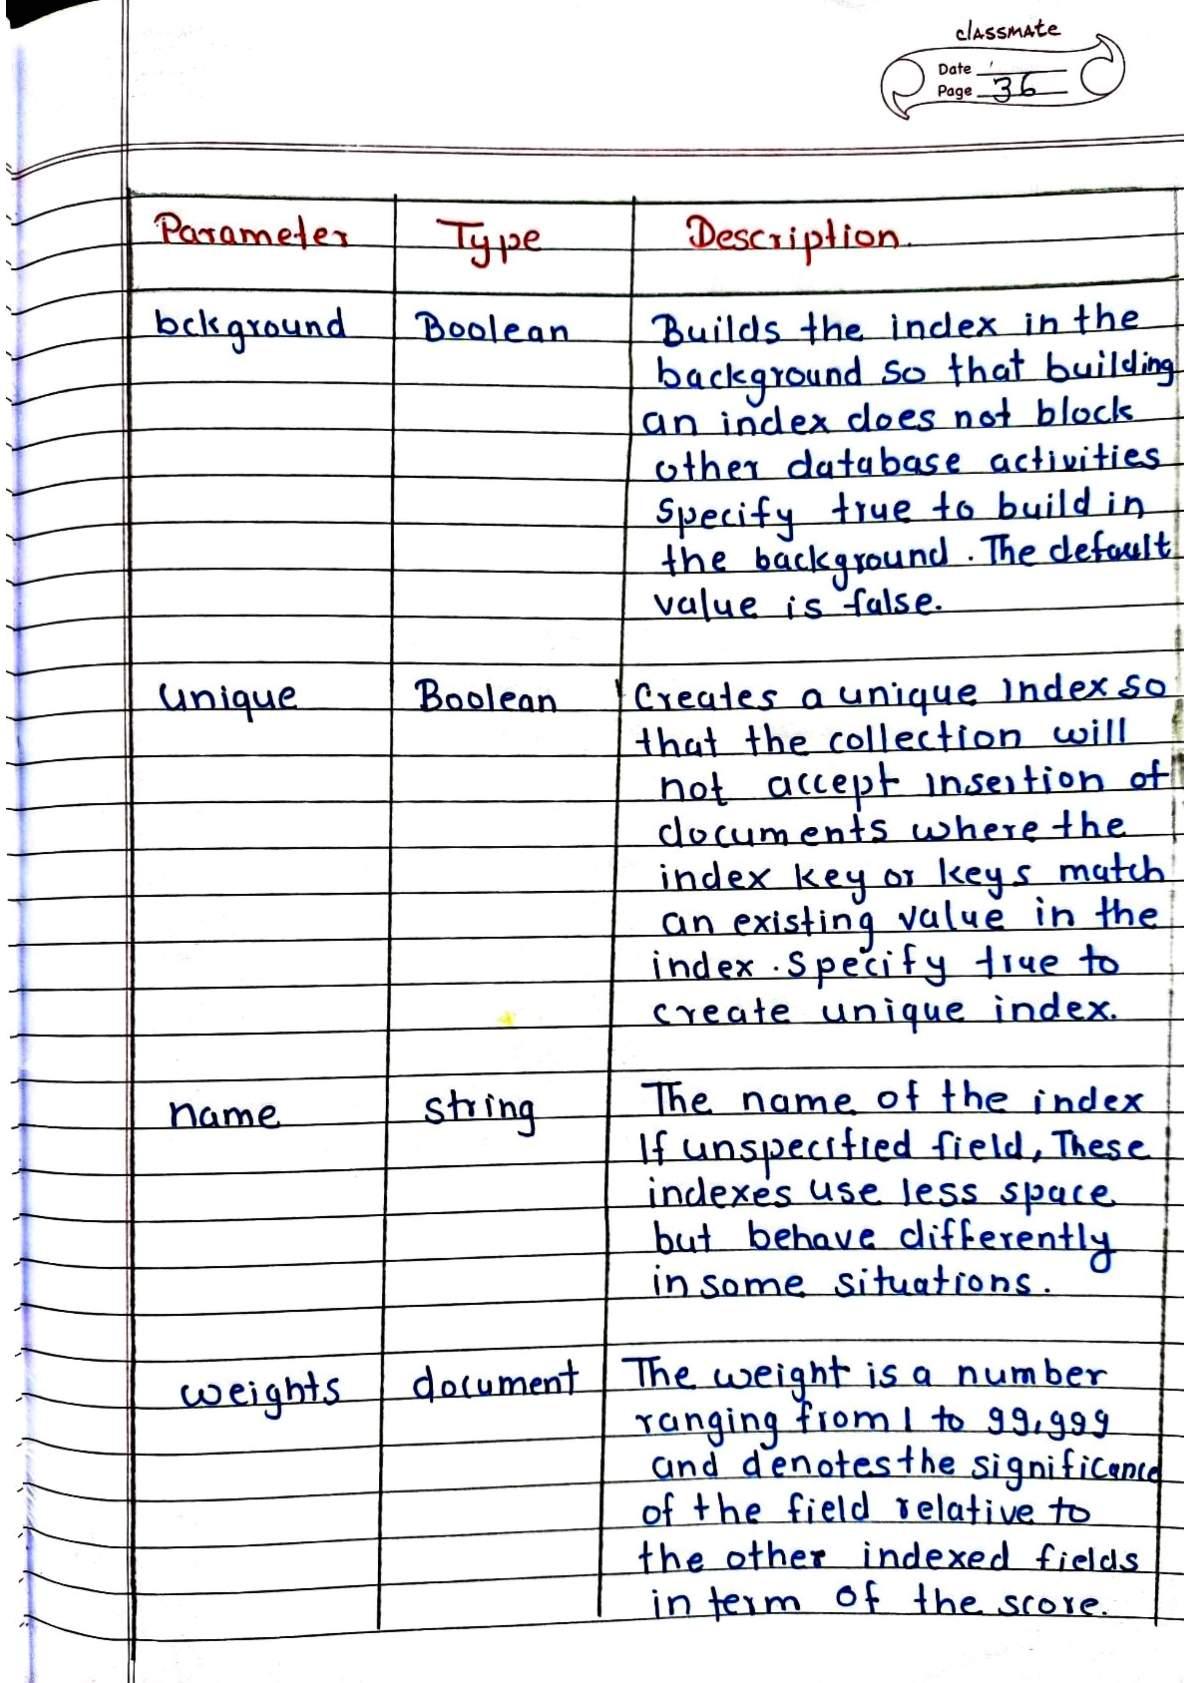 classmate
Date
Page 36
Parameter Type Description.
bckground Boolean Builds the index in the
background so that building
an index does not block
other database activities
Specify true to build in
the background. The default
value is false.
unique Boolean Creates a unique index so
that the collection will
not accept insertion of
documents where the
index key or keys match
an existing value in the
index. Specify true to
create unique index.
name string The name of the index
If unspecified field, These
indexes use less space
but behave differently
in some situations.
weights document The weight is a number
ranging from 1 to 99,999
and denotes the significance
of the field relative to
the other indexed fields
in term of the score.